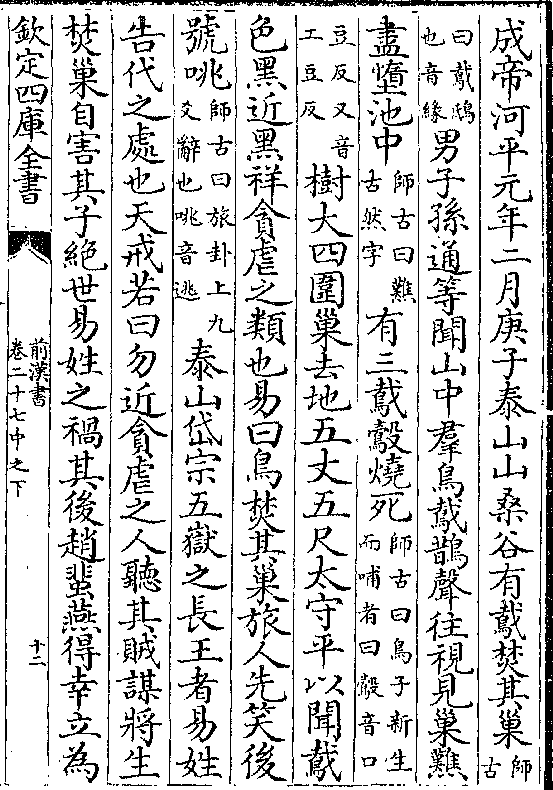 成帝河平元年二月庚子泰山山桑谷有䳒焚其巢師古
曰䳒鴟也音緣男子孫通等聞山中羣鳥䳒鵲聲往視見巢難
盡墮池中師古曰難古然字有三䳒鷇燒死師古曰鳥子新生而哺者曰鷇音口
豆反又音工豆反樹大四圍巢去地五丈五尺太守平以聞䳒
色黑近黑祥貪虐之類也易曰鳥焚其巢旅人先笑後
號咷師古曰旅卦上九爻辭也咷音逃泰山岱宗五嶽之長王者易姓
告代之處也天戒若曰勿近貪虐之人聽其賊謀將生
焚巢自害其子絕世易姓之禍其後趙蜚燕得幸立為
欽定四庫全書
前漢書
卷二十七中之下
十二